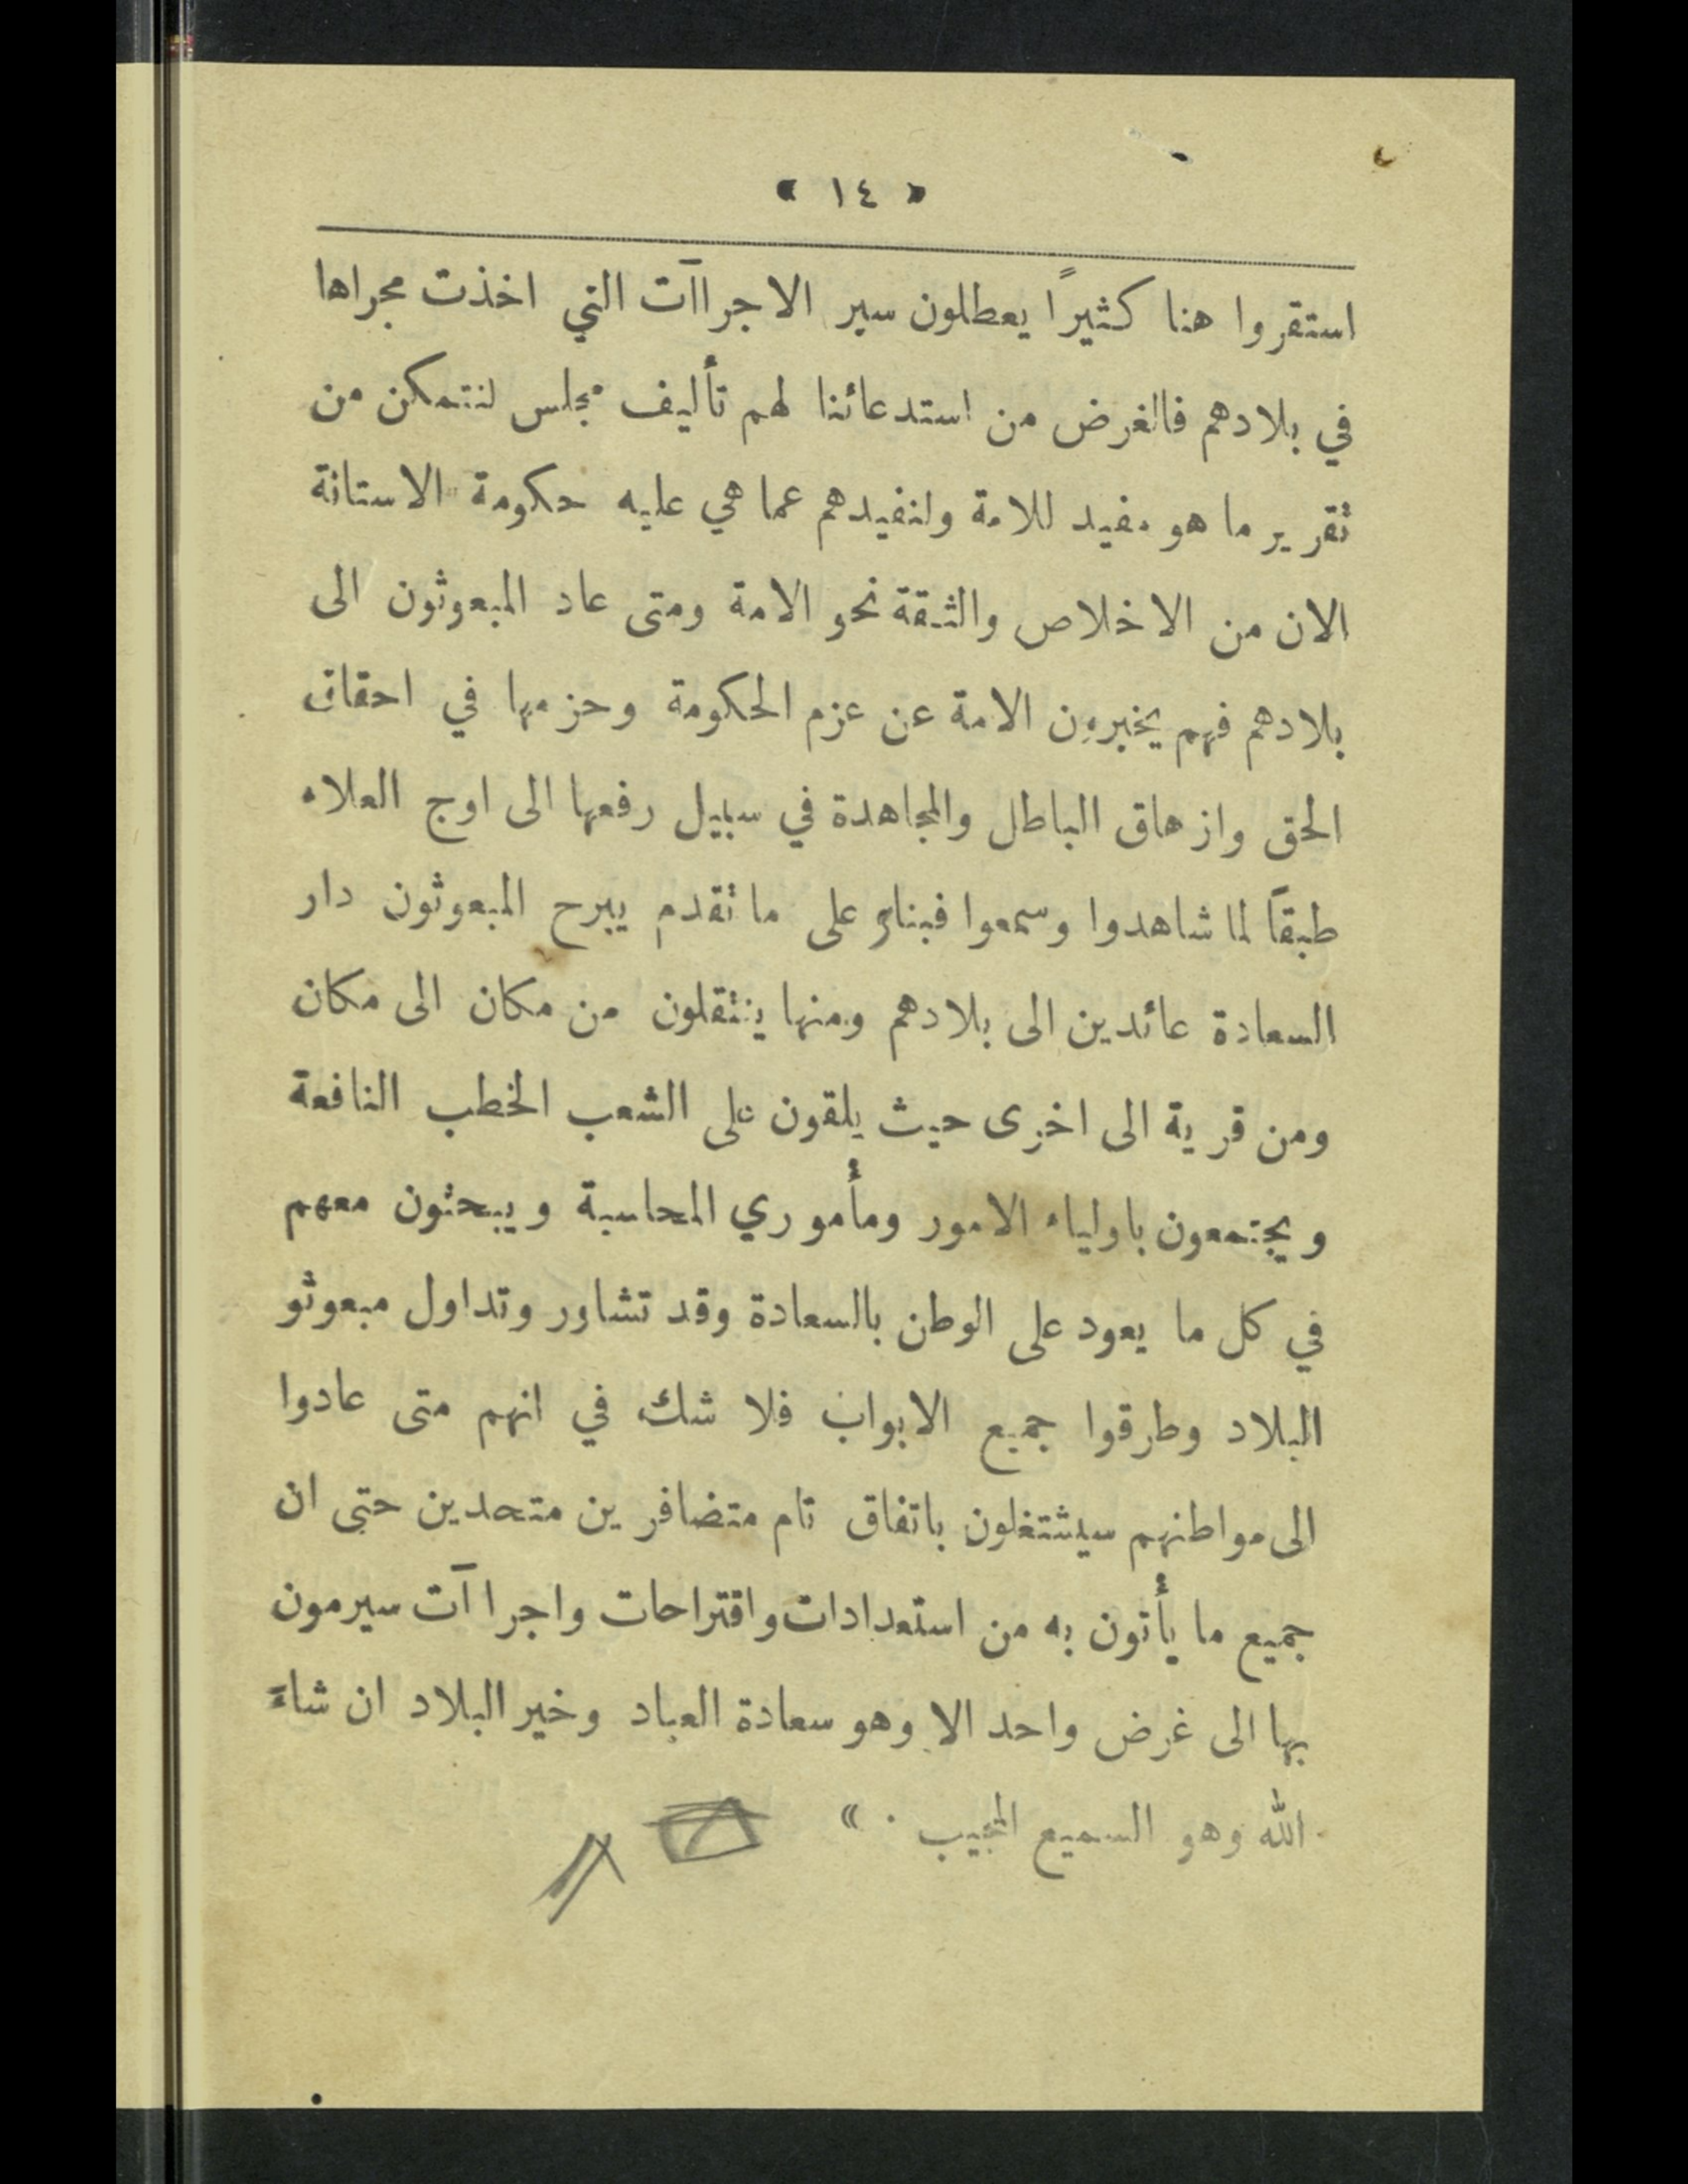 « ١٤ »
استقروا هنا كثيرًا يعطلون سير الاجراآت التي اخذت مجراها
في بلادهم فالغرض من استدعائنا لهم تأليف مجلس لنتمكن من
تقرير ما هو مفيد للامة ولنفيدهم عما هي عليه حكومة الاستانة
الان من الاخلاص والثقة نحو الامة ومتى عاد المبعوثون الى
بلادهم فهم يخبرون الامة عن عزم الحكومة وحزمها في احقاق
الحق وازهاق الباطل والمجاهدة في سبيل رفعها الى اوج العلاء
طبقًا لما شاهدوا وسمعوا فبناءً على ما تقدم يبرح المبعوثون دار
السعادة عائدين الى بلادهم ومنها ينتقلون من مكان الى مكان
ومن قرية الى اخرى حيث يلقون على الشعب الخطب النافعة
ويجتمعون باولياء الامور ومأموري المحاسبة ويبحثون معهم
في كل ما يعود على الوطن بالسعادة وقد تشاور وتداول مبعوثو
البلاد وطرقوا جميع الابواب فلا شك في انهم متى عادوا
الى مواطنهم سيشتغلون باتفاق تام متضافرين متحدين حتى ان
جميع ما يأتون به من استعدادات واقتراحات واجراآت سيرمون
بها الى غرض واحد الا وهو سعادة العباد وخير البلاد ان شاءَ
الله وهو السميع المجيب . »